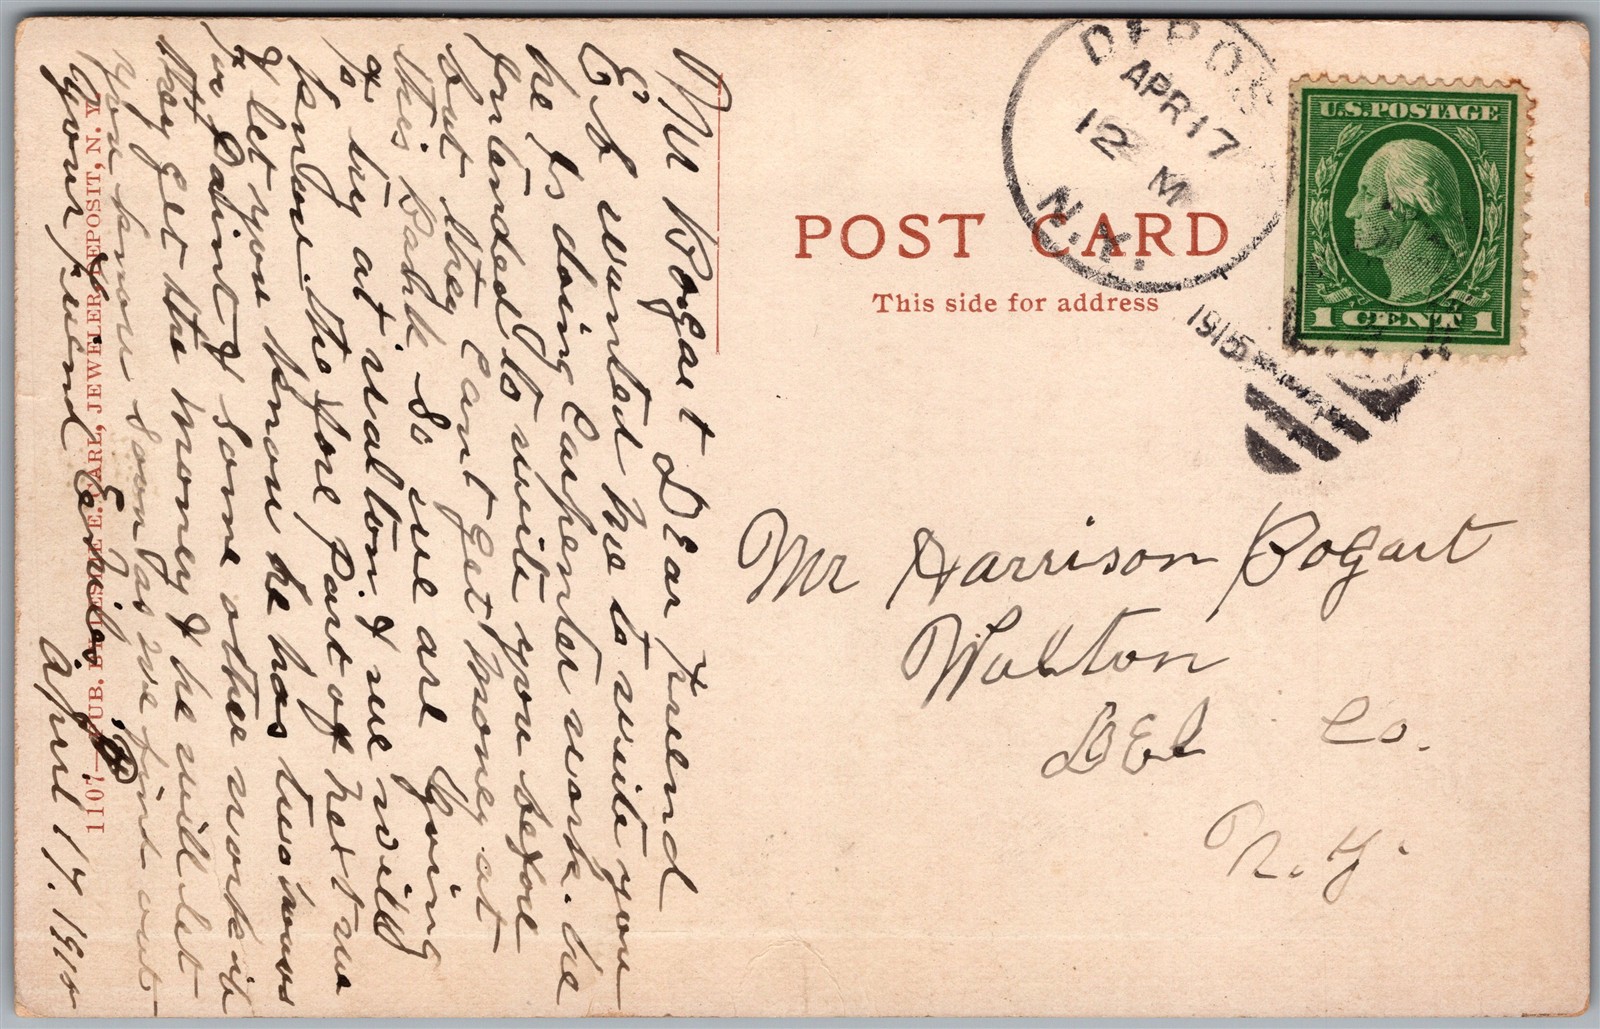 Mr Bogart Dear friend
Eb wanted me to write you
he Is doing Carpenter work. he
fontended to write you before
but they Cant get money at
this Bank So we are Going
to try at walton & we will
know the fore Part of next we
& let you know he has two hous
to Paint & Some other work ib
they get the money & he will let
you know Soon as we find out
your friend
April 17. 1915
1107—PUB. BY LESLIE E. CARL, JEWELER, DEPOSIT, N. Y.
POST CARD
This side for address
DEPOSIT
APR 17
12 M
N.Y.
1915
U.S. POSTAGE
1 CENT 1
Mr Harrison Bogart
Walton
DEl Co.
N.Y.